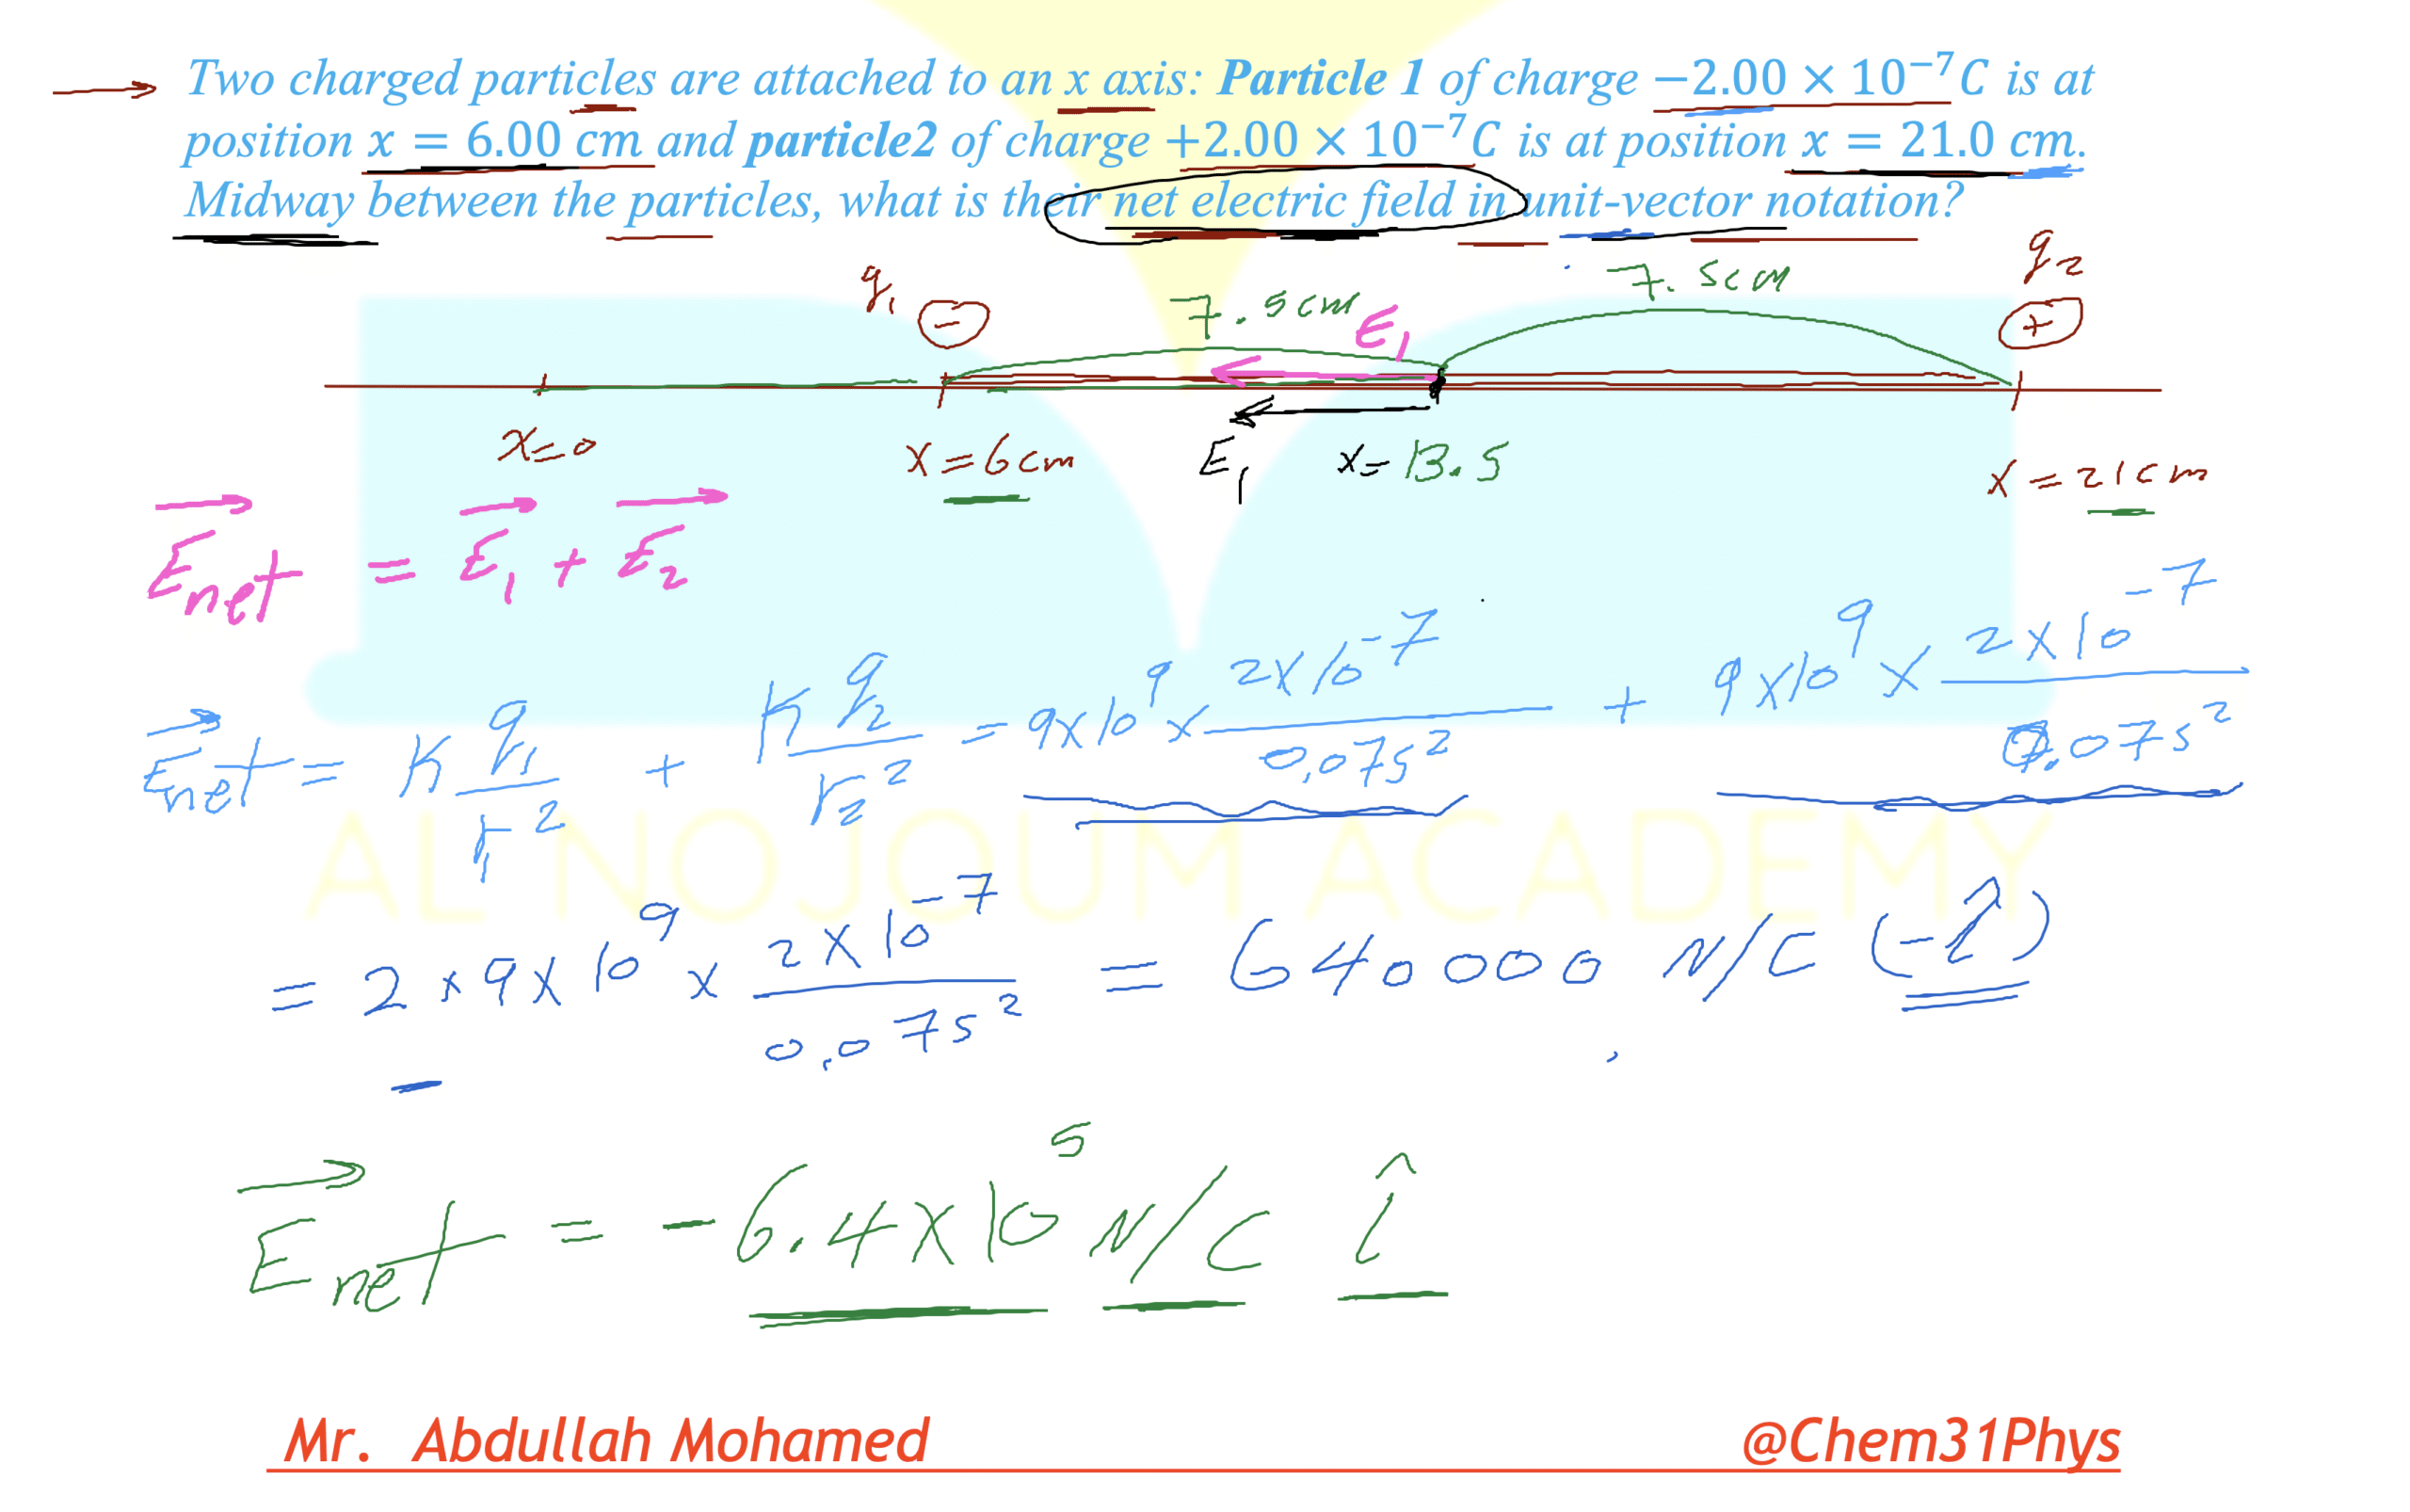 Two charged particles are attached to an x axis: Particle 1 of charge −2.00 × 10⁻⁷C is at
position x = 6.00 cm and particle2 of charge +2.00 × 10⁻⁷C is at position x = 21.0 cm.
Midway between the particles, what is their net electric field in unit-vector notation?
q₁ − 7.5cm E₁ 7.5cm q₂ +
x=0 x=6cm E₁ x=13.5 x=21cm
E⃗net = E⃗₁ + E⃗₂
E⃗net = K q₁/r₁² + K q₂/r₂² = 9×10⁹ × 2×10⁻⁷/0.075² + 9×10⁹ × 2×10⁻⁷/0.075²
AL NOJOUM ACADEMY
= 2×9×10⁹ × 2×10⁻⁷/0.075² = 640000 N/C (−î)
E⃗net = −6.4×10⁵ N/C î
Mr. Abdullah Mohamed @Chem31Phys